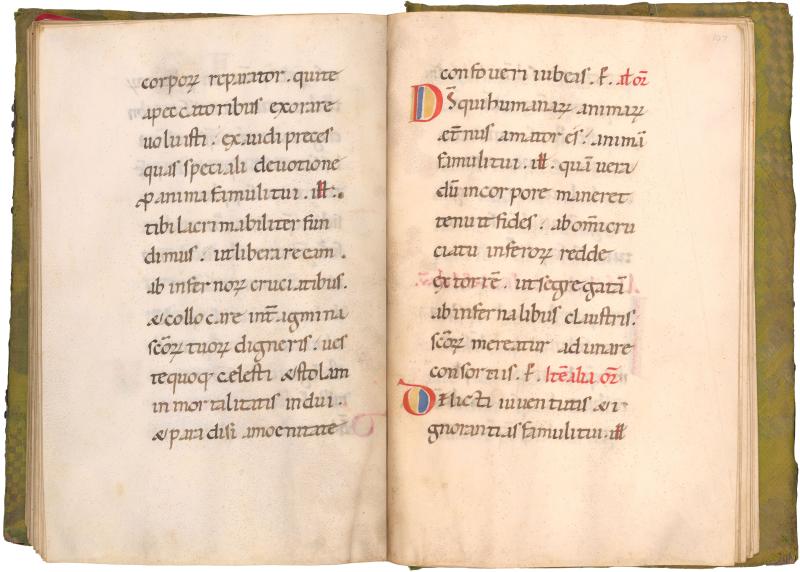 corporꝝ reparator. qui te
a peccatoribus exorare
uoluisti. exaudi preces
quas speciali deuotione
ꝓ anima famuli tui. ill̅.
tibi lacrimabiliter fun
dimus. ut liberare eam.
ab infernorꝝ cruciatibus.
& collocare int̅ agmina
sc̅orꝝ tuorꝝ digneris. ues
te quoq celesti & stolam
inmortalitatis indui.
& paradisi amoenitate
confoueri iubeas. ꝑ. al̅ or̅
Ds̅ qui humanarꝝ animarꝝ
æt̅nus amator es. animā
famuli tui. ill̅. quā uera
dū in corpore maneret
tenuit fides. ab om̅i cru
ciatu inferorꝝ redde
extorrē. ut segregata
ab infernalibus claustris.
sc̅orꝝ mereatur adunare
consortiis. ꝑ. Itē alia or̅
Delicta iuuentutis & i
gnorantias famuli tui. ill̅